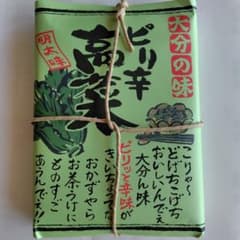 大分の味
ピリ辛
高菜
明太味
こりゃ〜
どげちこげち
おいしいんでぇ
大分ん味
ピリッと辛味が
きいちょって
おかずやら
お茶うけに
とのすご
あうんでえ!!